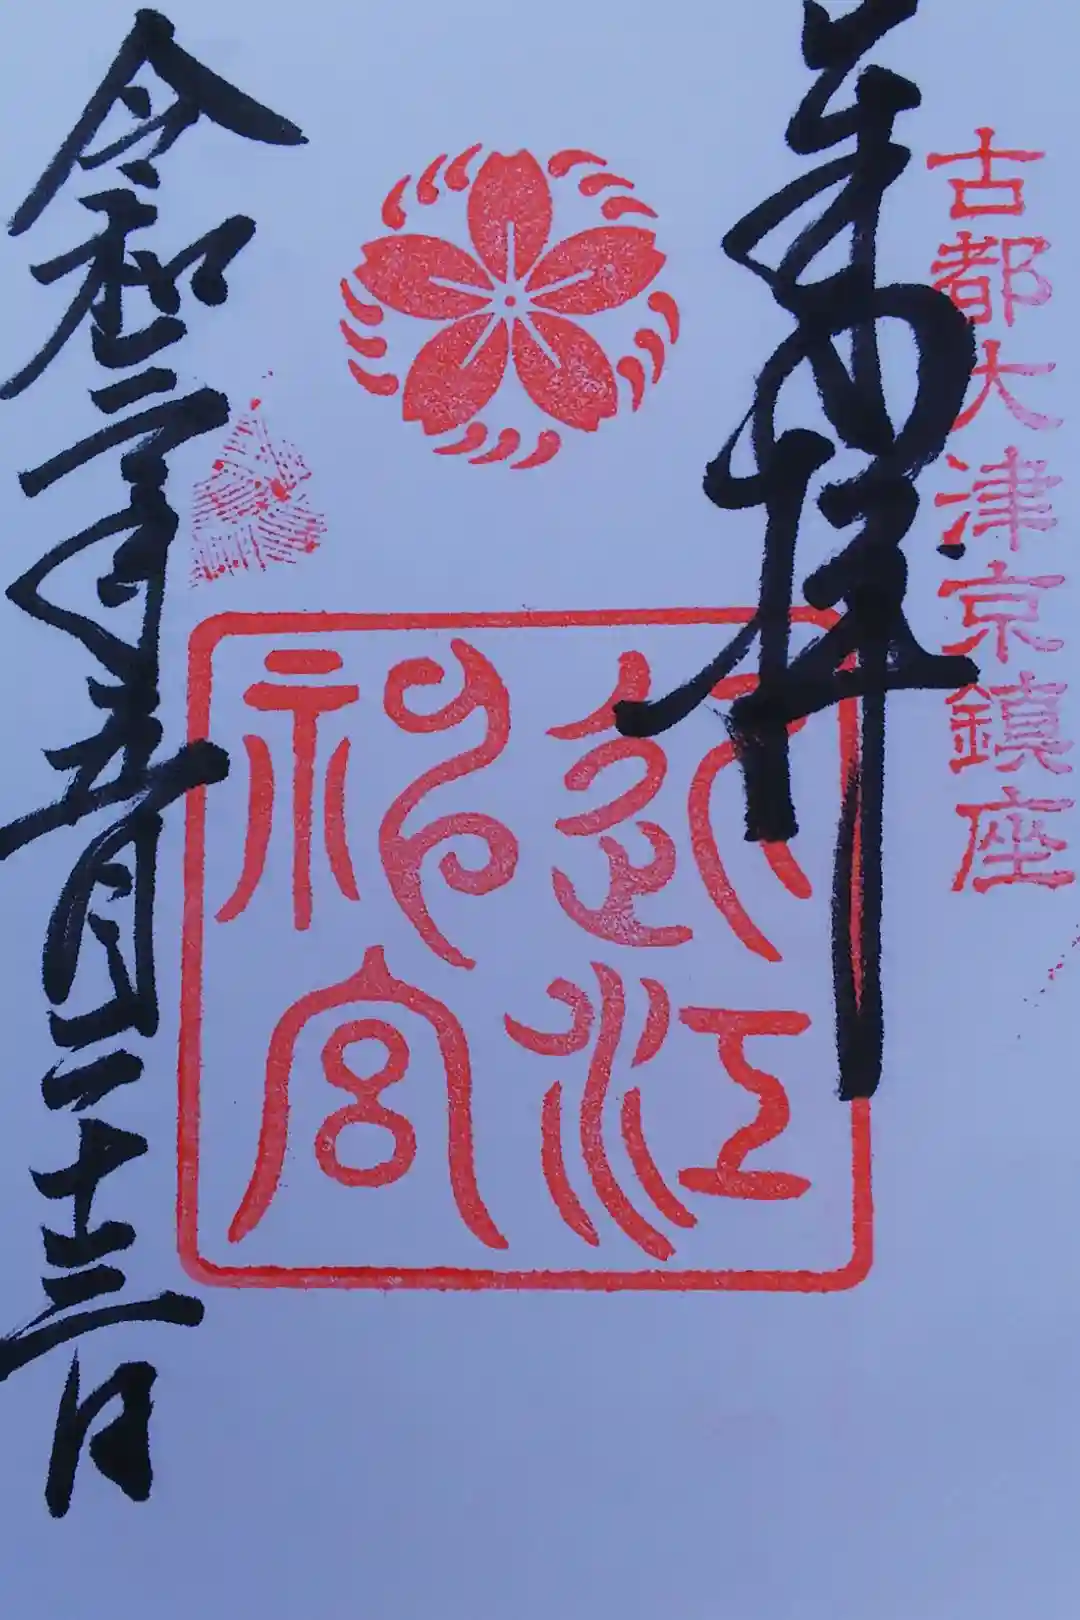 古都大津京鎮座
奉拝
近江
神宮
令和三年五月二十三日